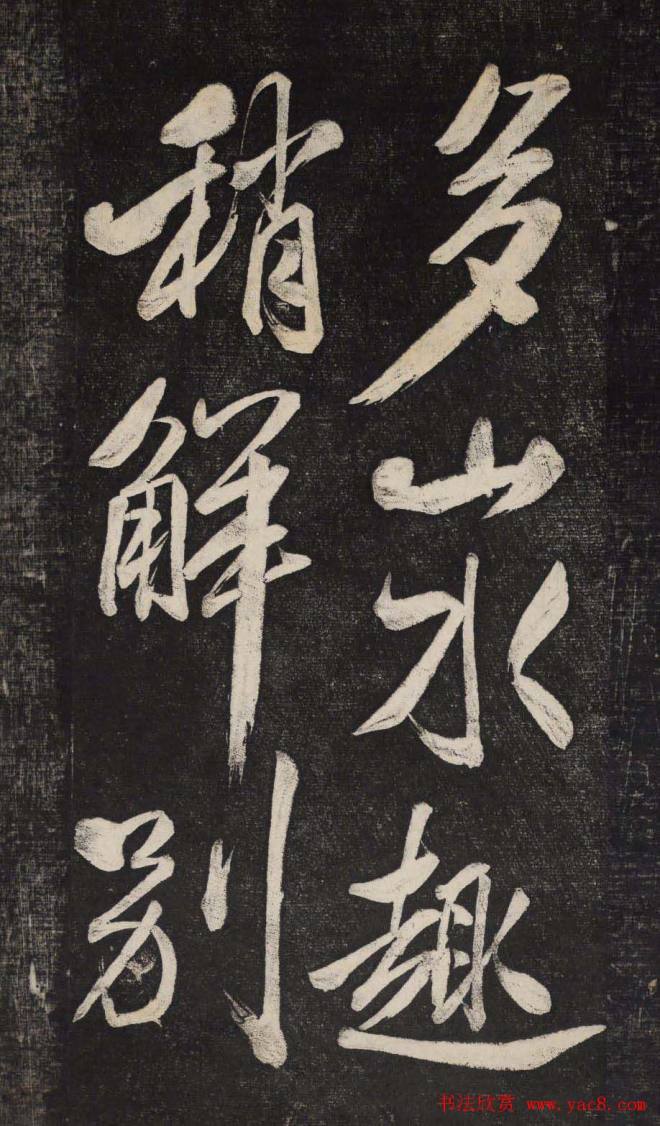 多山水趣
稍解别
书法欣赏 www.yac8.com